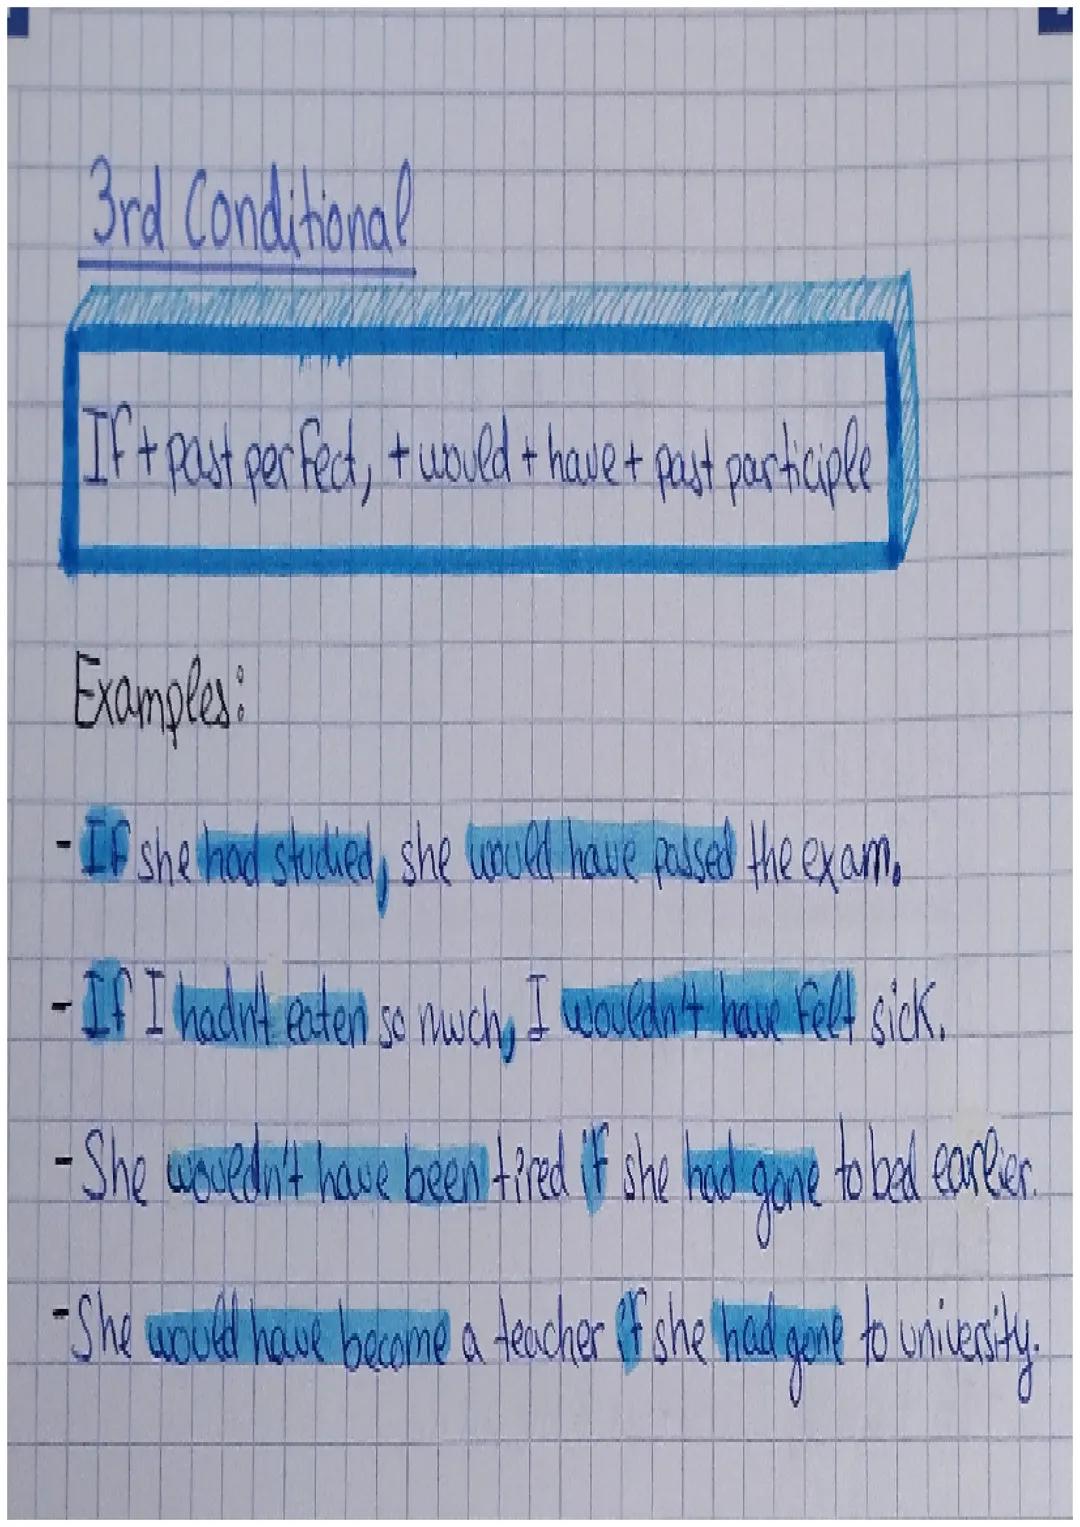 3rd Conditional
If + past perfect, + would + have + past participle
Examples:
- If she had studied, she would have passed the exam.
- If I hadn't eaten so much, I wouldn't have felt sick.
- She wouldn't have been tired if she had gone to bed earlier.
- She would have become a teacher if she had gone to university.